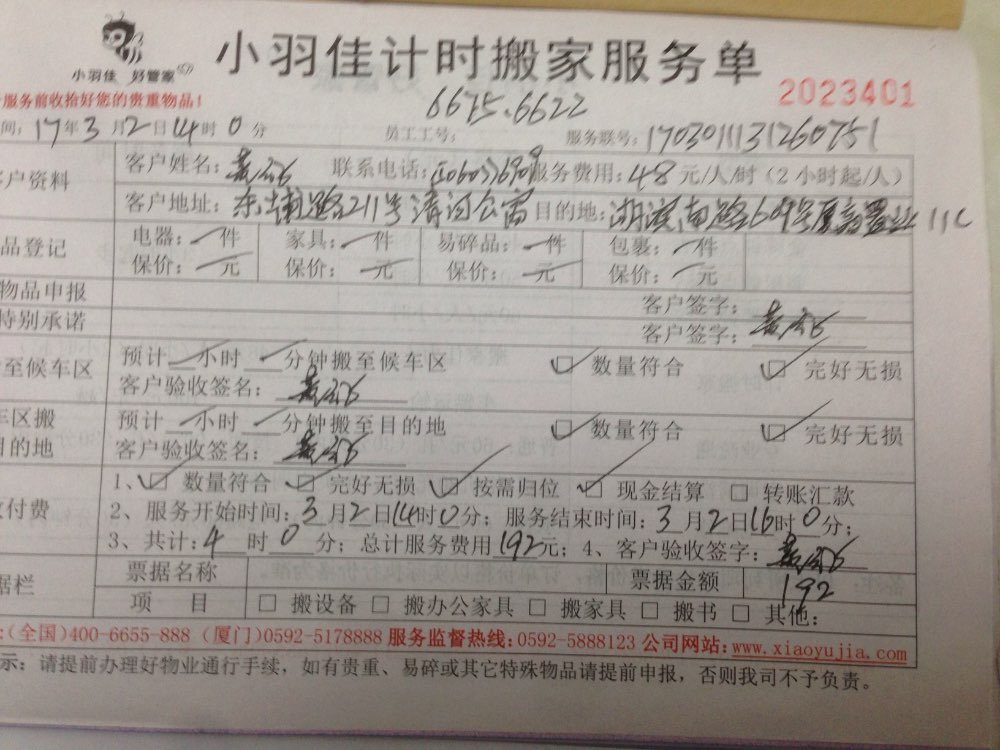 小羽佳 好管家
小羽佳计时搬家服务单
服务前收拾好您的贵重物品!
2023401
6675.6622
间: 17年3月2日14时0分 员工工号: 服务联号: 170301131260751
客户资料 客户姓名: 联系电话: 服务费用: 48元/人/时(2小时起/人)
客户地址: 东浦路211号清河公寓 目的地: 湖滨南路609号厦新置业11C
品登记 电器: 一件 家具: 一件 易碎品: 一件 包裹: 一件
保价: 一元 保价: 一元 保价: 一元 保价: 一元
物品申报 客户签字:
特别承诺 客户签字:
至候车区 预计一小时 分钟搬至候车区 ☑ 数量符合 ☑ 完好无损
客户验收签名:
车区搬 预计一小时 分钟搬至目的地 ☑ 数量符合 ☑ 完好无损
目的地 客户验收签名:
1、☑ 数量符合 ☑ 完好无损 ☑ 按需归位 ☑ 现金结算 □ 转账汇款
付费 2、服务开始时间: 3月2日14时0分; 服务结束时间: 3月2日16时0分;
3、共计: 4时0分; 总计服务费用192元; 4、客户验收签字:
据栏 票据名称 票据金额 192
项 目 □ 搬设备 □ 搬办公家具 □ 搬家具 □ 搬书 □ 其他:
:(全国)400-6655-888 (厦门)0592-5178888 服务监督热线:0592-5888123 公司网站:www.xiaoyujia.com
示: 请提前办理好物业通行手续, 如有贵重、易碎或其它特殊物品请提前申报, 否则我司不予负责。